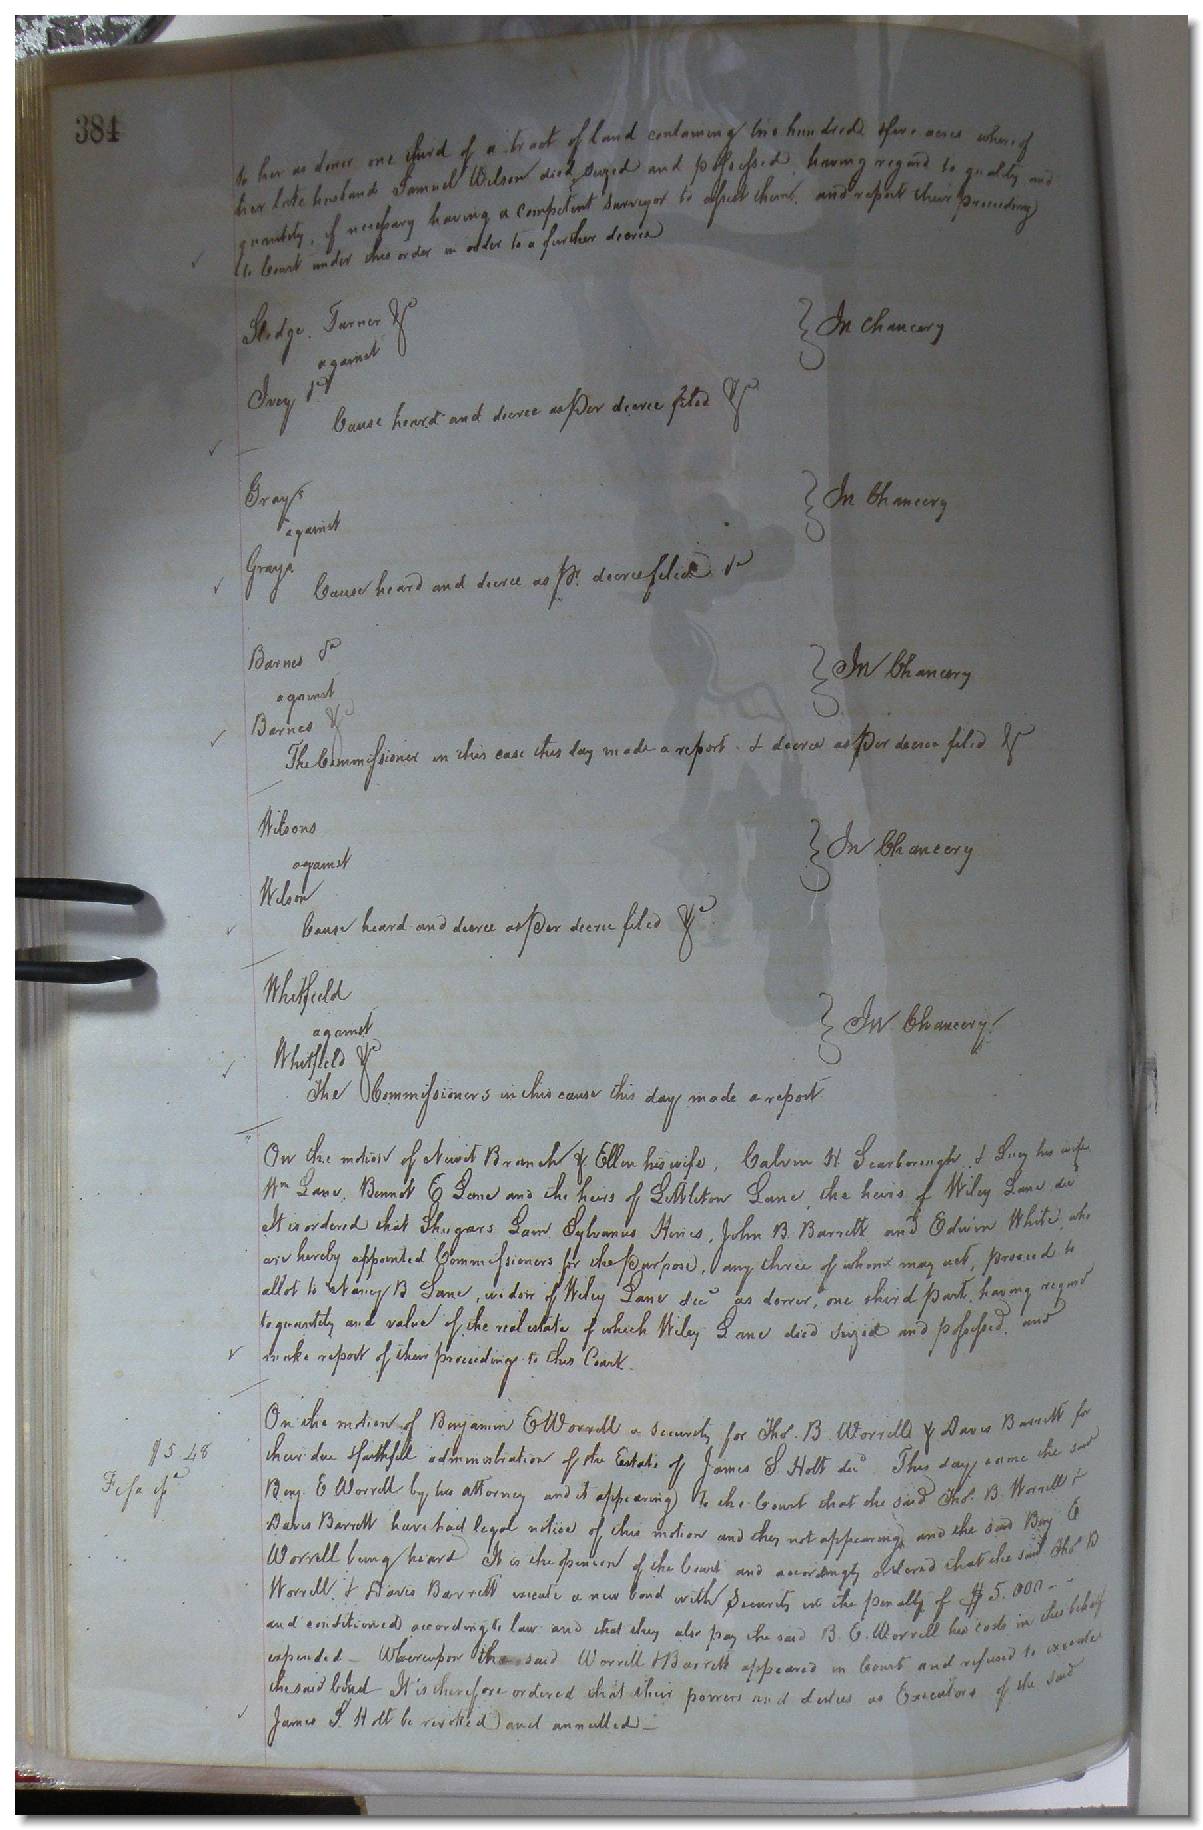 384
to her as dower one third of a tract of land containing two hundred & five acres whereof
her late husband Samuel Wilson died seized and possessed, having regard to quality and
quantity, if necessary having a competent surveyor to assist them, and report their proceeding
to Court under this order in order to a further decree
Sledge, Turner &c
against
In Chancery
Ivey &c
Cause heard and decree as per decree filed &c
Grays
against
In Chancery
Grays
Cause heard and decree as pr. decree filed &c
Barnes &c
against
In Chancery
Barnes &c
The Commissioner in this case this day made a report & decree as per decree filed &c
Wilsons
against
In Chancery
Wilson
Cause heard and decree as per decree filed &c
Whitfield
against
In Chancery
Whitfield &c
The Commissioners in this cause this day made a report
On the motion of Newit Branch & Ellen his wife, Calvin H Scarborough & Lucy his wife
Wm Lane, Bennet E Lane and the heirs of Littleton Lane, the heirs of Wiley Lane dec
It is ordered that Sylvanus Hines, John B. Barrett and Edwin White, who
are hereby appointed Commissioners for the purpose, any three of whom may act, proceed to
allot to Nancy B Lane, widow of Wiley Lane decd as dower, one third part, having regard
to quantity and value of the real estate of which Wiley Lane died seized and possessed, and
make report of their proceedings to this Court.
On the motion of Benjamin E Worrell a security for Tho. B. Worrell & Davis Barrett for
their due & faithful administration of the Estate of James S. Holt decd This day came the said
$5.48
Benj. E Worrell by his attorney and it appearing to the Court that the said Tho. B. Worrell &
Fi fa isd
Davis Barrett have had legal notice of this motion and they not appearing, and the said Benj E
Worrell being heard It is the opinion of the Court and accordingly ordered that the said Tho B
Worrell & Davis Barrett execute a new bond with security in the penalty of $5.000--
and conditioned according to law and that they also pay the said B. E. Worrell his costs in this behalf
expended - Whereupon the said Worrell & Barrett appeared in Court and refused to execute
the said bond It is therefore ordered that their powers and duties as Executors of the said
James S. Holt be revoked and annulled -